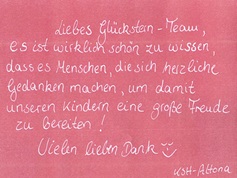 Liebes Glückstein-Team,
es ist wirklich schön zu wissen,
dass es Menschen, die sich herzliche
Gedanken machen, um damit
unseren Kindern eine große Freude
zu bereiten!
Vielen lieben Dank
KSH-Altona